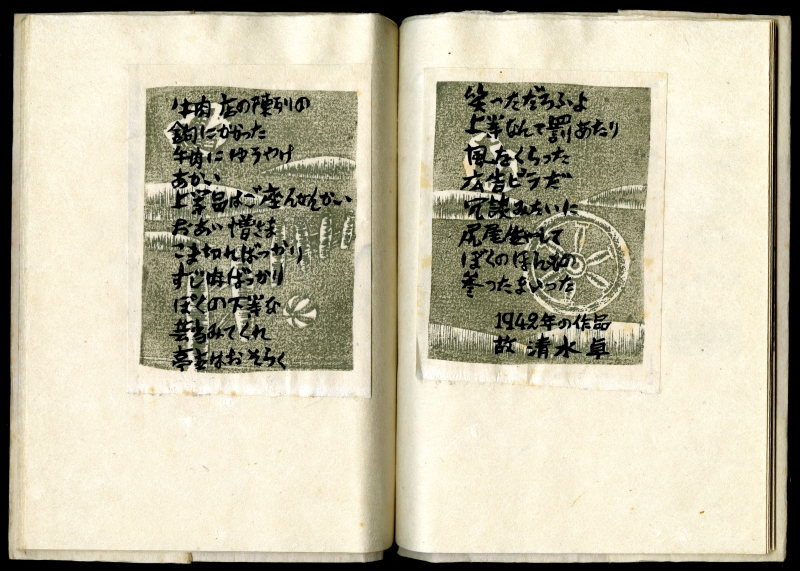 牛肉店の陳列の
鈎にかかった
牛肉にゆうやけ
あかい
上等品はご座んせんかい
おあい憎さま
こま切ればっかり
すじ肉ばっかり
ぼくの下等な
弁当みてくれ
亭主はおそらく
笑っただろふよ
上等なんて罰あたり
風をくらった
広告ビラだ
冗談みたいに
尻尾生やして
ぼくのほんもの
参ったまいった
1942年の作品
故 清水卓